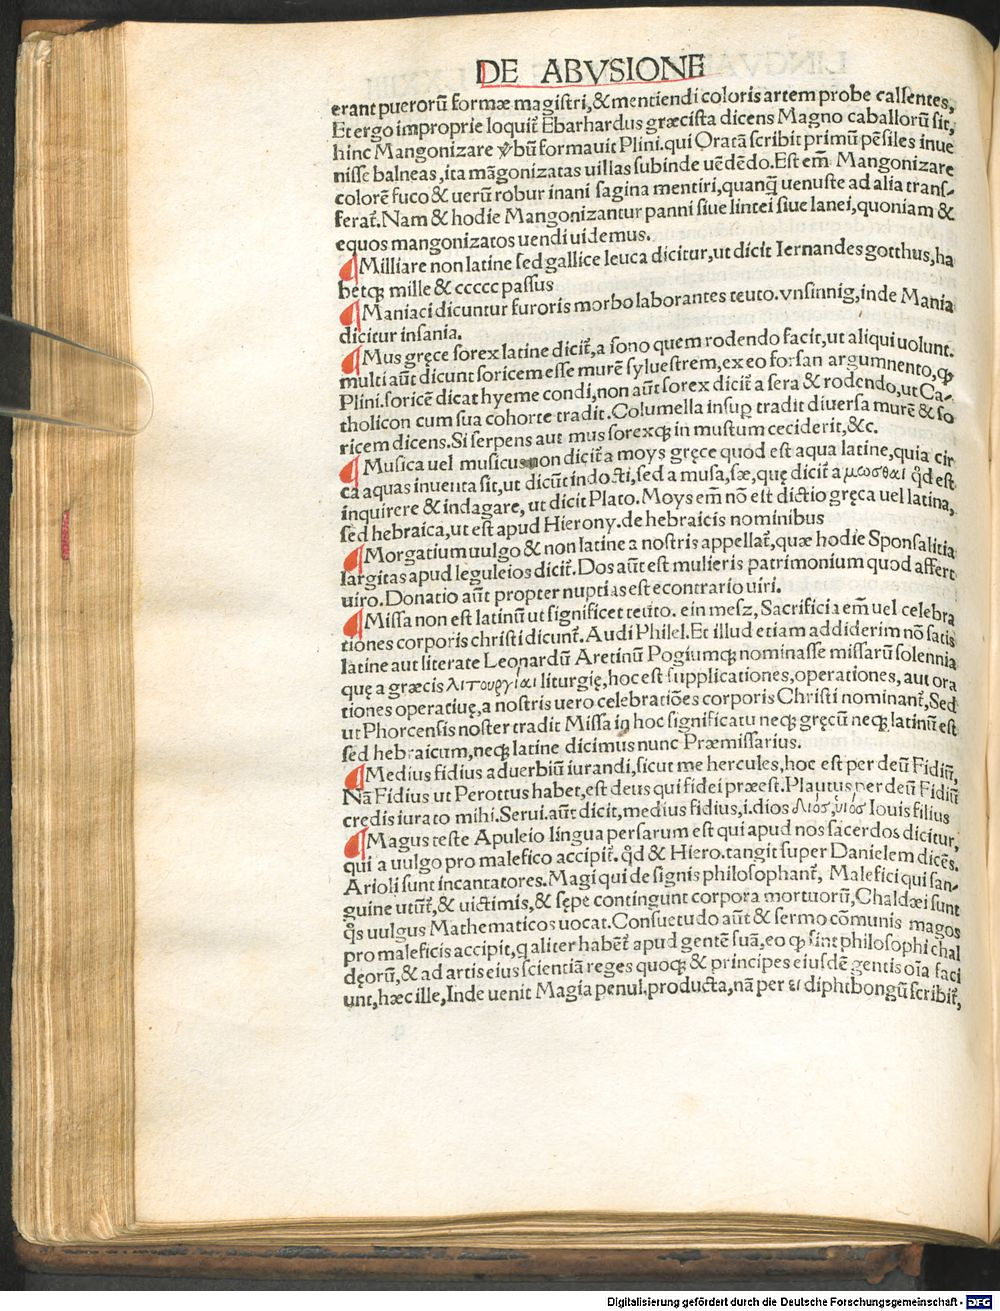 DE ABVSIONE
erant puerorũ formæ magistri,&mentiendi coloris artem probe callentes,
Et ergo improprie loquit̃ Ebarhardus græcista dicens Magno caballorũ sit,
hinc Mangonizare ꝟbũ formauit Plini.qui Oratã scribit primũ pẽsiles inue
nisse balneas,ita mãgonizatas uillas subinde uẽdẽdo.Est em̃ Mangonizare
colorẽ fuco & uerũ robur inani sagina mentiri,quanq̃ uenuste ad alia trans-
ferat̃.Nam & hodie Mangonizantur panni siue lintei siue lanei,quoniam &
equos mangonizatos uendi uidemus.
¶Milliare non latine sed gallice leuca dicitur,ut dicit Iernandes gotthus,ha
betqꝫ mille & ccccc passus
¶Maniaci dicuntur furoris morbo laborantes teuto.vnsinnig,inde Mania
dicitur insania.
¶Mus gręce sorex latine dicit̃,a sono quem rodendo facit,ut aliqui uolunt.
multi aũt dicunt soricem esse murẽ syluestrem,ex eo forsan argumnento,ꝙ
Plini.soricẽ dicat hyeme condi,non aũt sorex dicit̃ a sera & rodendo,ut Ca-
tholicon cum sua cohorte tradit.Columella insuꝑ tradit diuersa murẽ & so
ricem dicens.Si serpens aut mus sorexqꝫ in mustum ceciderit,&c.
¶Musica uel musicus non dicit̃ a moys gręce quod est aqua latine,quia cir
ca aquas inuenta sit,ut dicũt indocti,sed a musa,sæ,quę dicit̃ a μωσθαι q̃d est
inquirere & indagare, ut dicit Plato.Moys em̃ nõ est dictio gręca uel latina,
sed hebraica,ut est apud Hierony.de hebraicis nominibus
¶Morgatium uulgo & non latine a nostris appellat̃,quæ hodie Sponsalitia
largitas apud leguleios dicit̃.Dos aũt est mulieris patrimonium quod affert
uiro.Donatio aũt propter nuptias est econtrario uiri.
¶Missa non est latinũ ut significet teuto. ein mesz, Sacrificia em̃ uel celebra
tiones corporis christi dicunt̃.Audi Philel.Et illud etiam addiderim nõ satis
latine aut literate Leonardũ Aretinũ Pogiumqꝫ nominasse missarũ solennia
quę a græcis λιτουργίαι liturgię,hoc est supplicationes,operationes, aut ora
tiones operatiuę,a nostris uero celebratiões corporis Christi nominant̃,Sed
ut Phorcensis noster tradit Missa in hoc significatu neqꝫ gręcũ neqꝫ latinũ est
sed hebraicum,neqꝫ latine dicimus nunc Præmissarius.
¶Medius fidius aduerbiũ iurandi,sicut me hercules,hoc est per deũ Fidiũ,
Nã Fidius ut Perottus habet,est deus qui fidei præest.Plautus per deũ Fidiũ
credis iurato mihi.Serui.aũt dicit,medius fidius,i.dios διός,ὑιός Iouis filius
¶Magus teste Apuleio lingua persarum est qui apud nos sacerdos dicitur,
qui a uulgo pro malefico accipit̃. q̃d & Hiero.tangit super Danielem dicẽs.
Arioli sunt incantatores.Magi qui de signis philosophant̃, Malefici qui san-
guine utũt̃,& uictimis,& sępe contingunt corpora mortuorũ,Chaldæi sunt
q̃s uulgus Mathematicos uocat.Consuetudo aũt & sermo cõmunis magos
pro maleficis accipit,q aliter habẽt̃ apud gentẽ suã,eo ꝙ sint philosophi chal
dęorũ,& ad artis eius scientiã reges quoqꝫ & principes eiusdẽ gentis oĩa faci
unt,hæc ille,Inde uenit Magia penul.producta,nã per ει diphthongũ scribit̃,
Digitalisierung gefördert durch die Deutsche Forschungsgemeinschaft - DFG